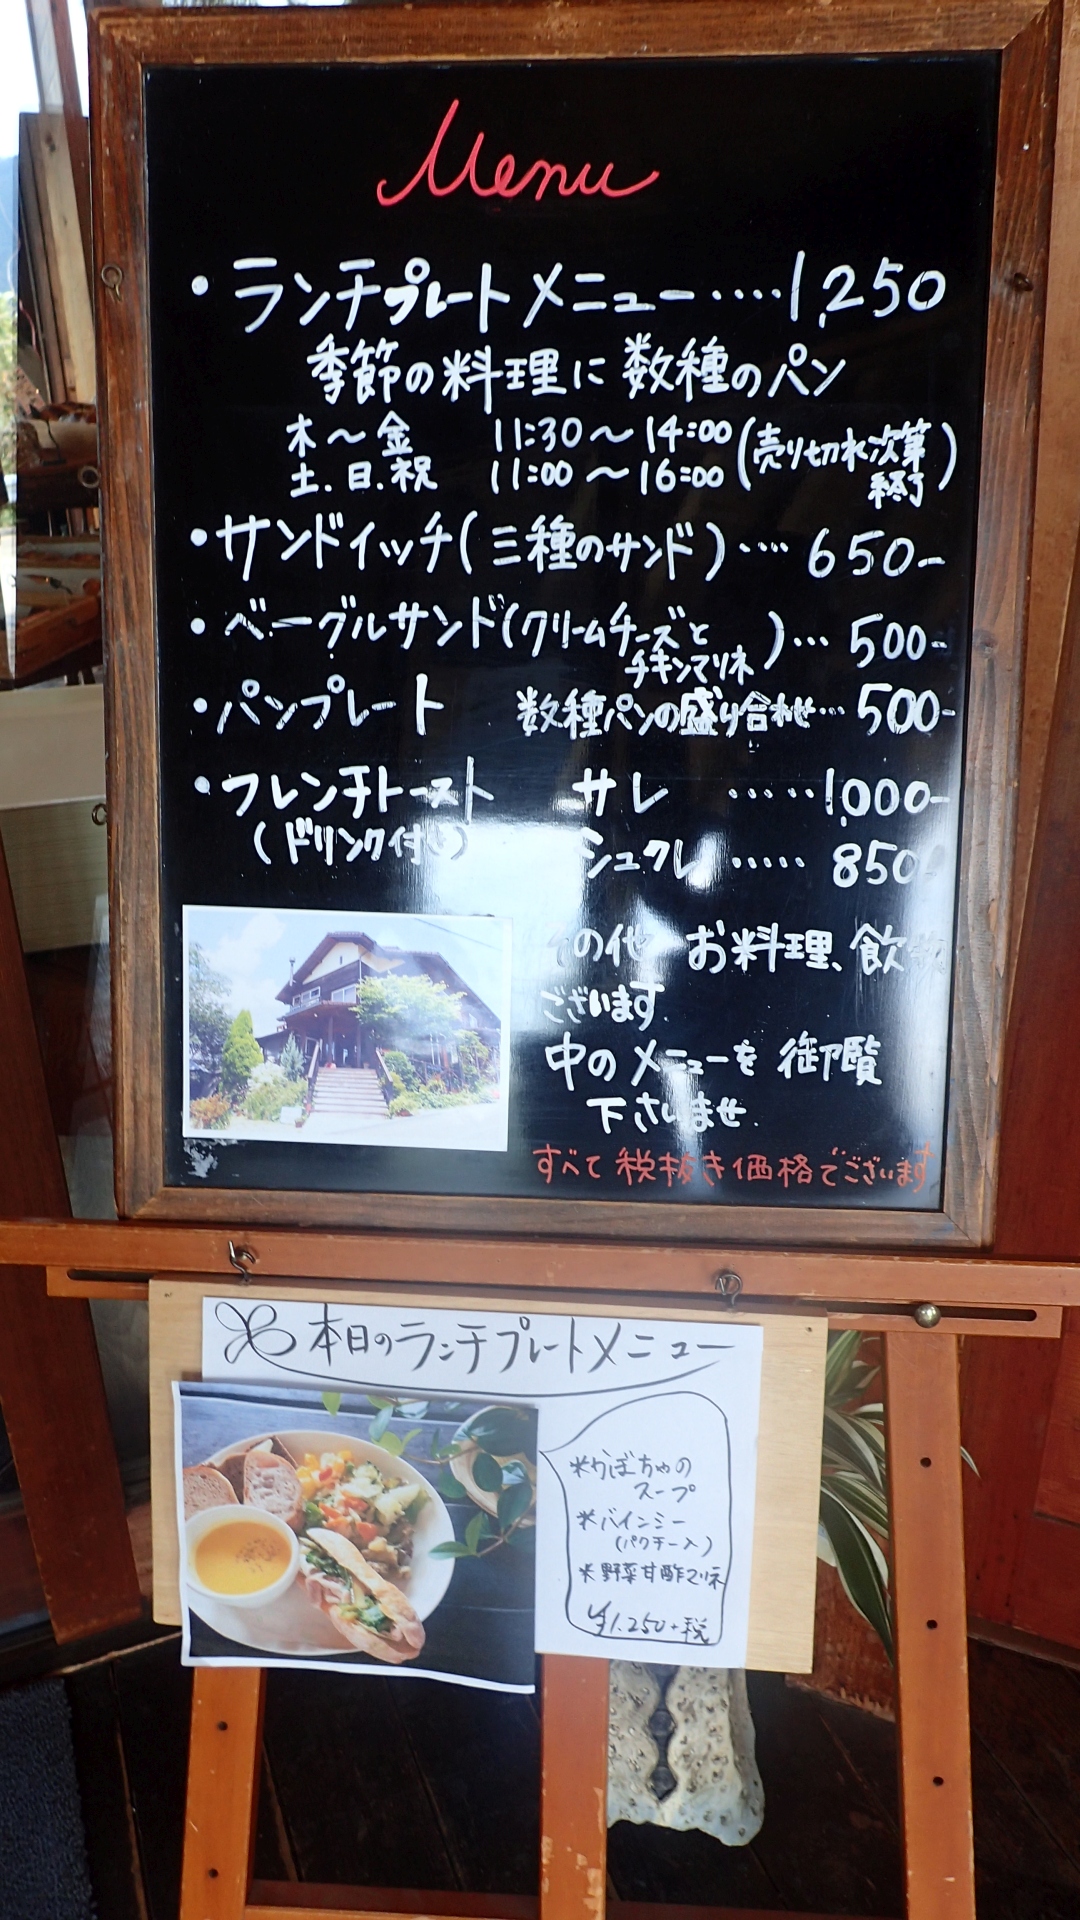 Menu
・ランチプレートメニュー‥‥1,250
季節の料理に数種のパン
木～金 11:30～14:00(売り切れ次第終了)
土.日.祝 11:00～16:00
・サンドイッチ(三種のサンド)‥‥650-
・ベーグルサンド(クリームチーズとチキンマリネ)…500-
・パンプレート 数種パンの盛り合わせ…500-
・フレンチトースト サレ ‥‥‥1,000-
(ドリンク付き) シュクレ ‥‥‥850-
その他 お料理、飲
ございます.
中のメニューを御覧
下さいませ.
すべて税抜き価格でございます
本日のランチプレートメニュー
*かぼちゃの
スープ
*バインミー
(パクチー入)
*野菜甘酢マリネ
¥1.250+税